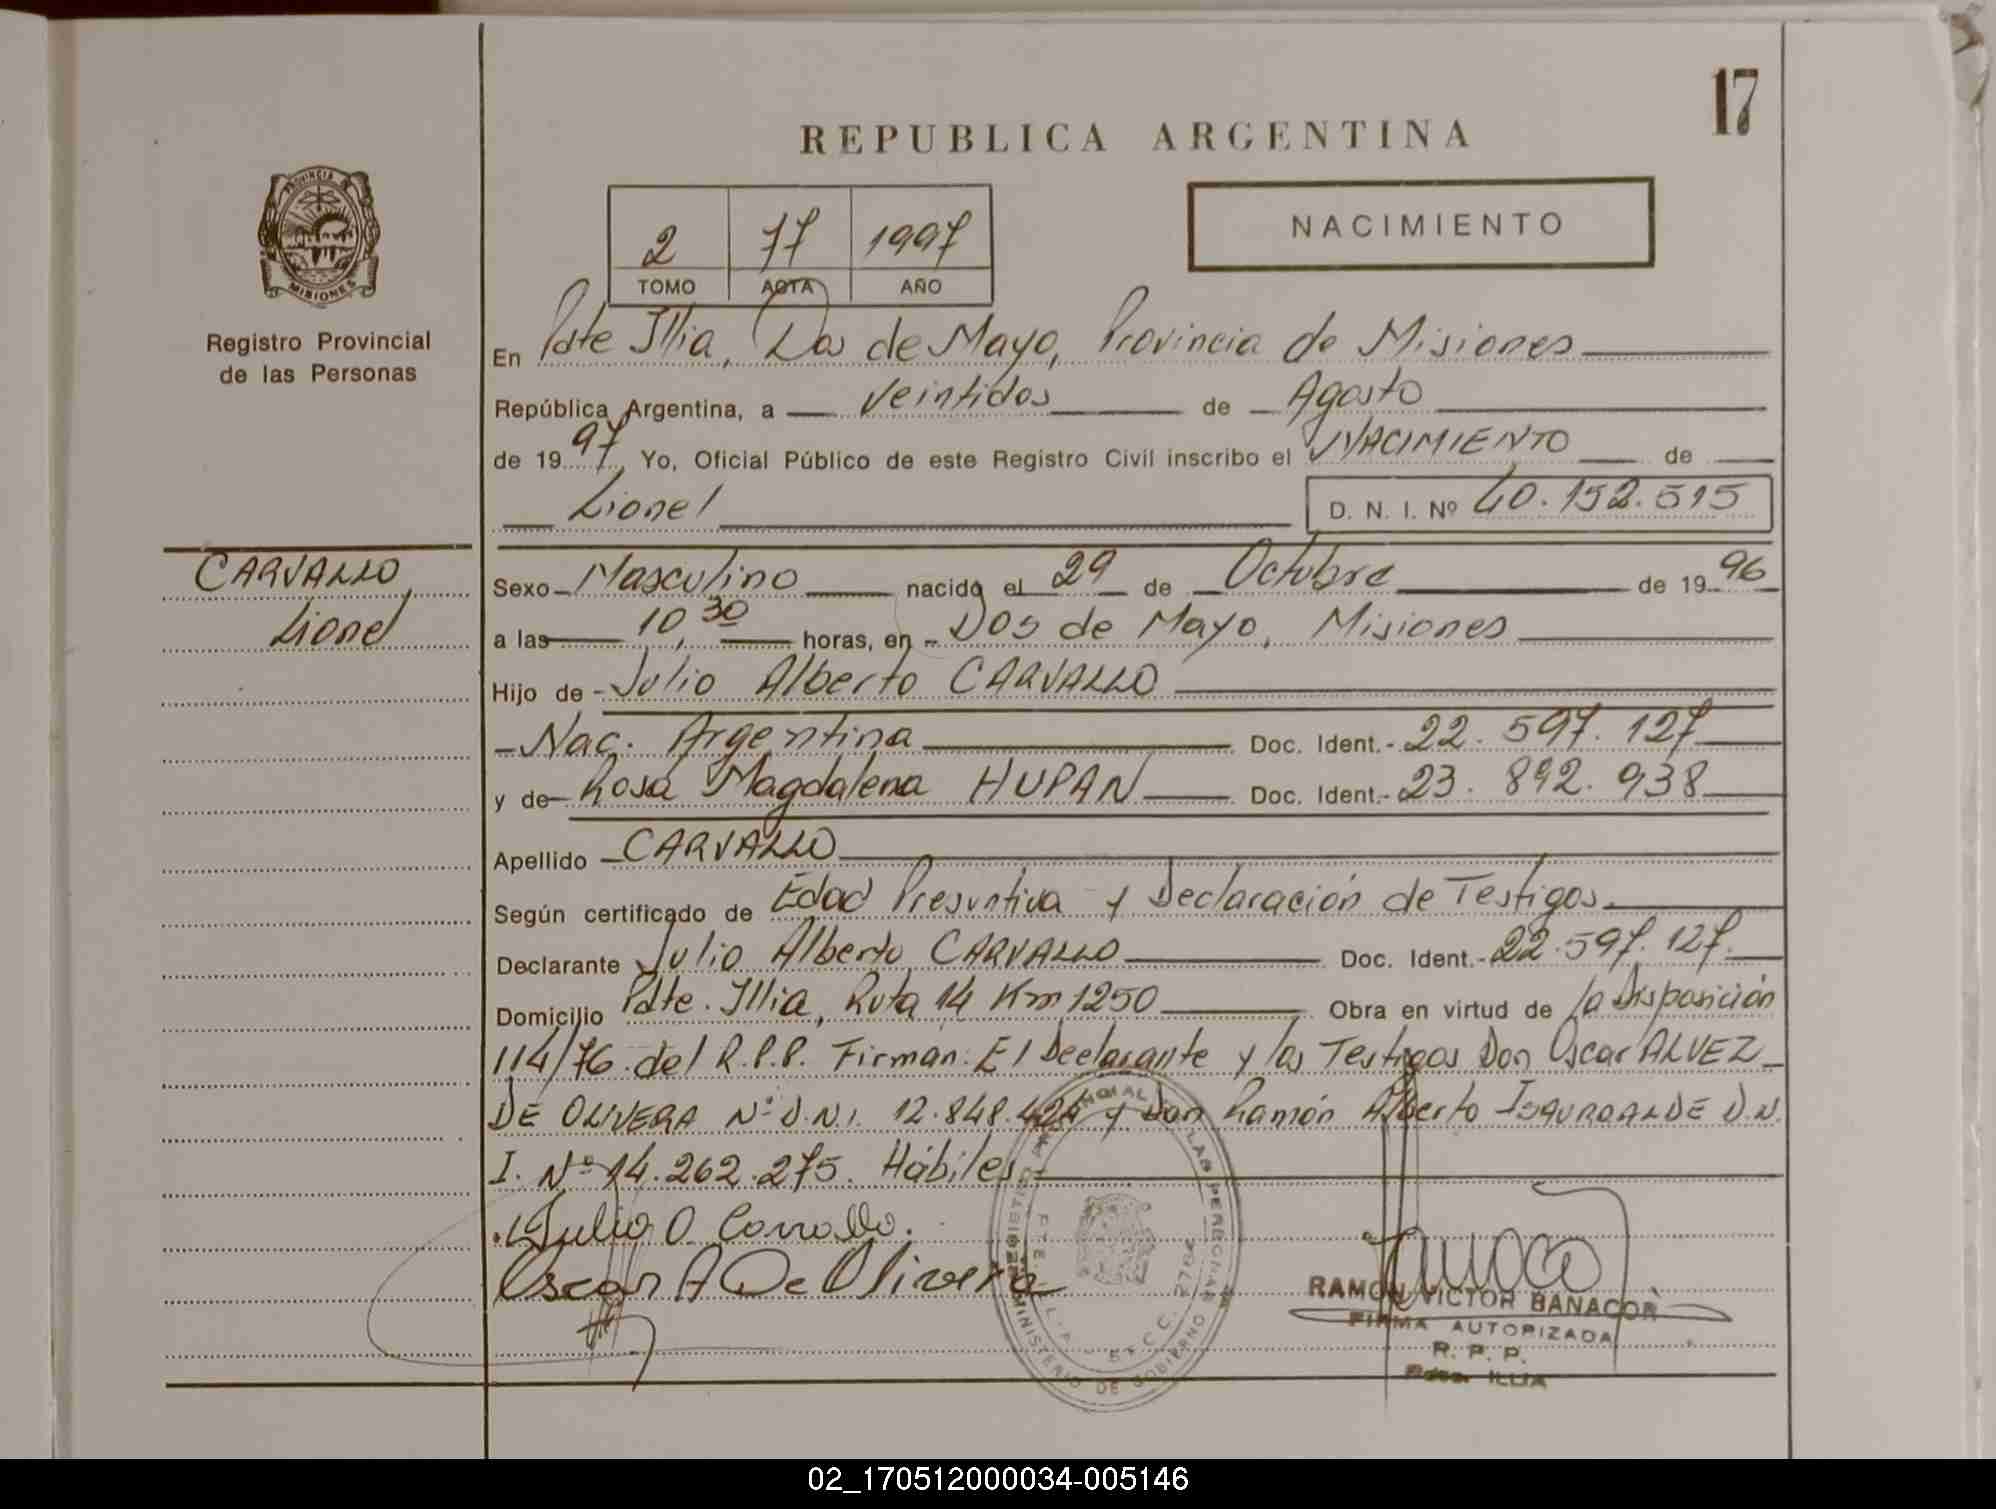 17
REPUBLICA ARGENTINA
NACIMIENTO
2 17 1997
TOMO ACTA AÑO
PROVINCIA DE
MISIONES
Registro Provincial
de las Personas
En Pdte Illia, Dos de Mayo, Provincia de Misiones
República Argentina, a Veintidos de Agosto
de 1997, Yo, Oficial Público de este Registro Civil inscribo el NACIMIENTO de
Lionel D. N. I. Nº 40.152.515
CARVALLO
Lionel
Sexo Masculino nacido el 29 de Octubre de 1996
a las 10,30 horas, en Dos de Mayo, Misiones
Hijo de Julio Alberto CARVALLO
Nac. Argentina Doc. Ident. 22.597.127
y de Rosa Magdalena HUPAN Doc. Ident. 23.892.938
Apellido CARVALLO
Según certificado de Edad Presuntiva y Declaración de Testigos.
Declarante Julio Alberto CARVALLO Doc. Ident. 22.597.127.
Domicilio Pdte. Illia, Ruta 14 Km 1250 Obra en virtud de la Disposición
114/76 del R.P.P. Firman: El Declarante y los Testigos Don Oscar ALVEZ
DE OLIVERA Nº D.N.I. 12.848.424 y Don Ramón Alberto D.N.
I. Nº 14.262.275. Hábiles
Julio A Carvallo.
Oscar A De Olivera
REGISTRO PROVINCIAL DE LAS PERSONAS
MINISTERIO DE GOBIERNO
RAMON VICTOR BANACOR
FIRMA AUTORIZADA
R. P. P.
Pdte. ILLIA
02_170512000034-005146